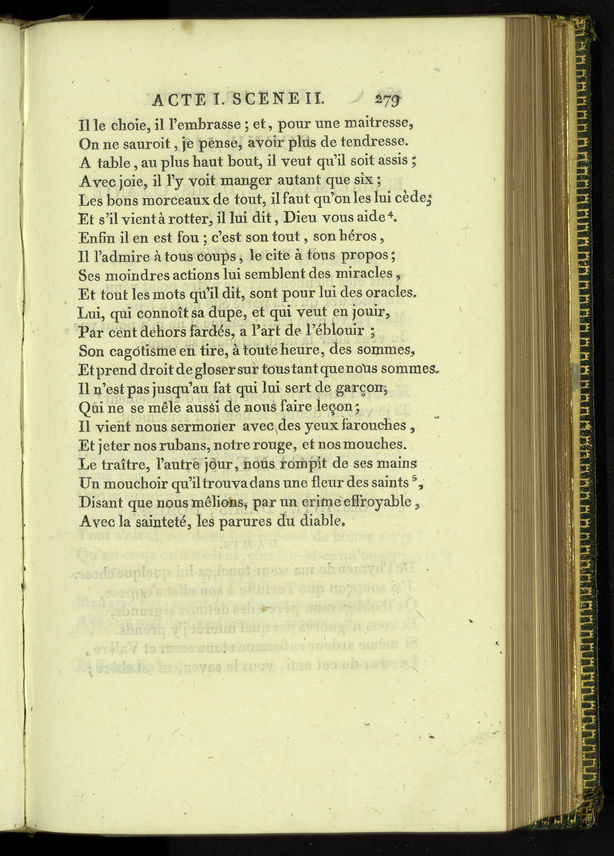 ACTE I. SCENE II. 279
Il le choie, il l'embrasse ; et, pour une maitresse,
On ne sauroit, je pense, avoir plus de tendresse.
A table, au plus haut bout, il veut qu'il soit assis ;
Avec joie, il l'y voit manger autant que six ;
Les bons morceaux de tout, il faut qu'on les lui cède;
Et s'il vient à rotter, il lui dit, Dieu vous aide⁴.
Enfin il en est fou ; c'est son tout, son héros,
Il l'admire à tous coups, le cite à tous propos ;
Ses moindres actions lui semblent des miracles,
Et tout les mots qu'il dit, sont pour lui des oracles.
Lui, qui connoît sa dupe, et qui veut en jouir,
Par cent dehors fardés, a l'art de l'éblouir ;
Son cagotisme en tire, à toute heure, des sommes,
Et prend droit de gloser sur tous tant que nous sommes.
Il n'est pas jusqu'au fat qui lui sert de garçon,
Qui ne se mêle aussi de nous faire leçon ;
Il vient nous sermoner avec des yeux farouches,
Et jeter nos rubans, notre rouge, et nos mouches.
Le traître, l'autre jour, nous rompit de ses mains
Un mouchoir qu'il trouva dans une fleur des saints⁵,
Disant que nous mêlions, par un crime effroyable,
Avec la sainteté, les parures du diable.